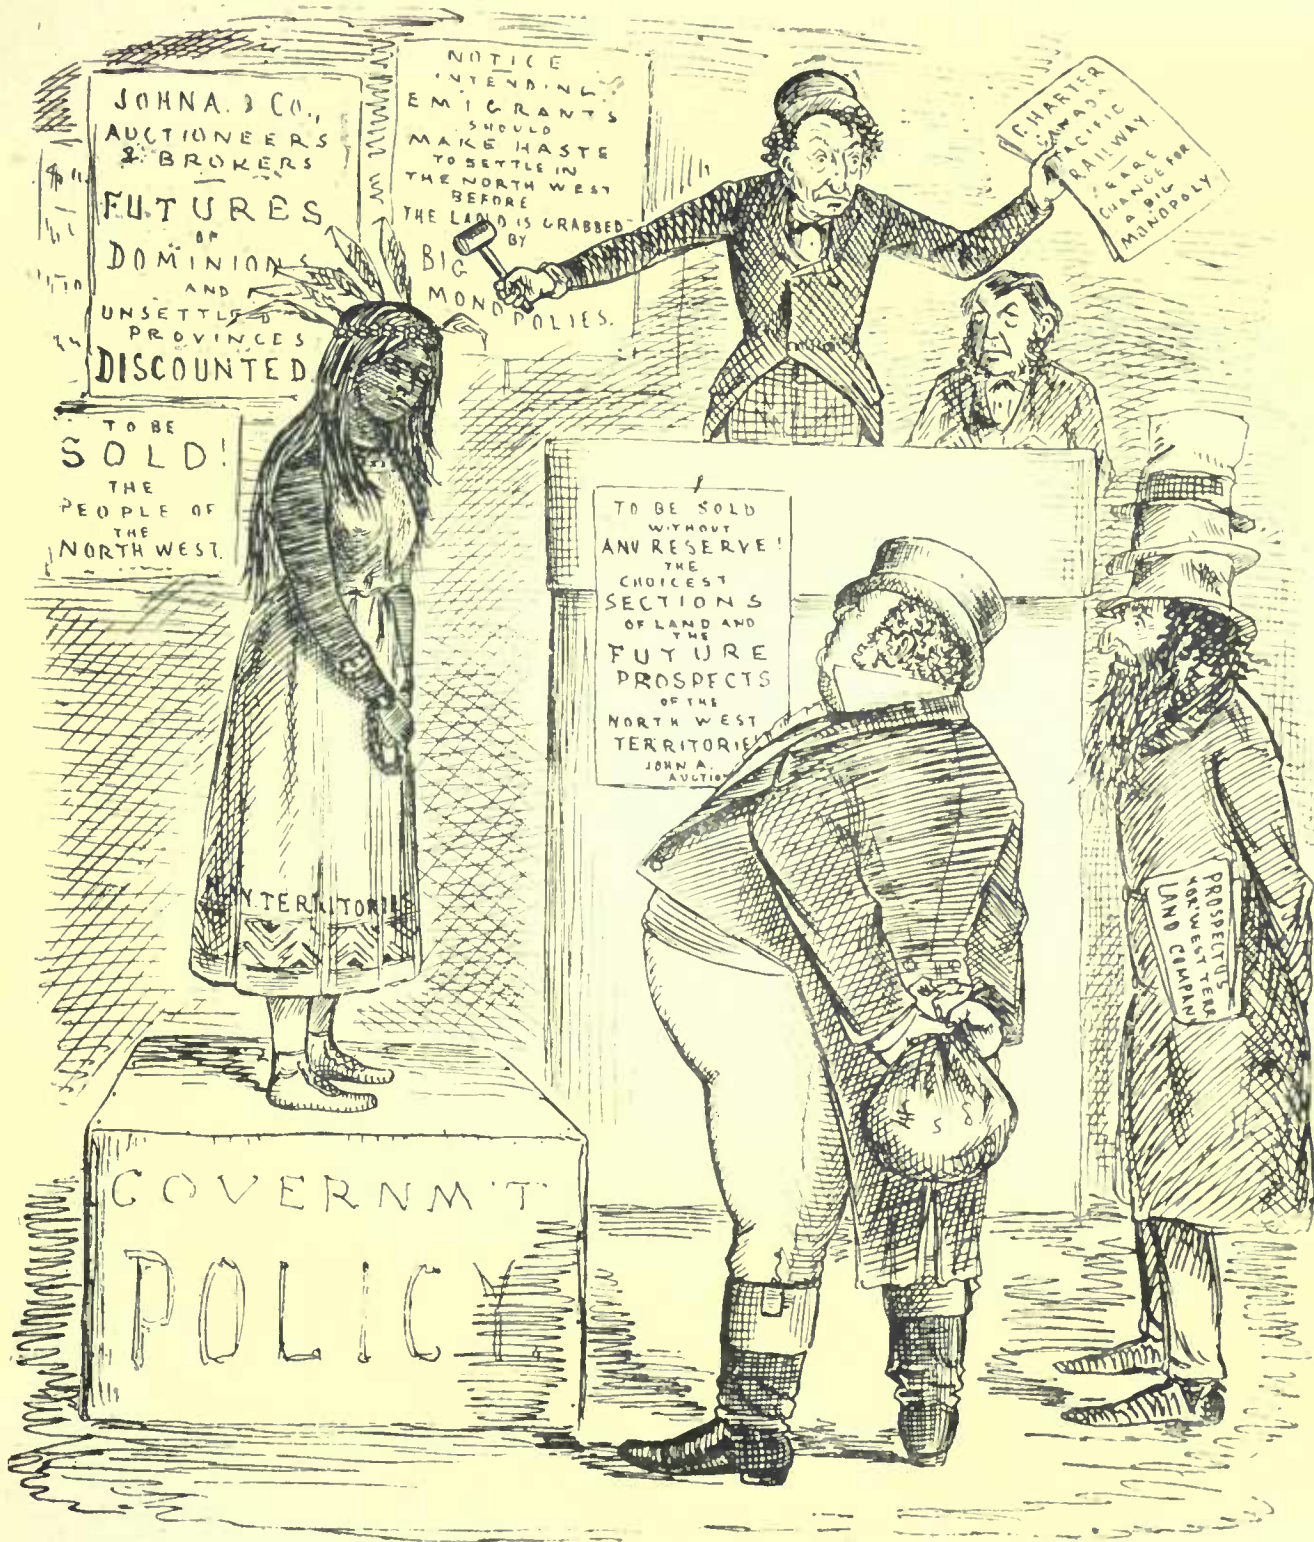 JOHN A. & CO.,
AUCTIONEERS
& BROKERS
FUTURES
OF
DOMINIONS
AND
UNSETTLED
PROVINCES
DISCOUNTED
NOTICE
INTENDING
EMIGRANTS
SHOULD
MAKE HASTE
TO SETTLE IN
THE NORTH WEST
BEFORE
THE LAND IS GRABBED
BY
BIG
MONOPOLIES.
CHARTER
CANADA
PACIFIC
RAILWAY.
RARE
CHANCE FOR
A BIG
MONOPOLY
TO BE
SOLD!
THE
PEOPLE OF
THE
NORTH WEST.
TO BE SOLD
WITHOUT
ANY RESERVE!
THE
CHOICEST
SECTIONS
OF LAND AND
THE
FUTURE
PROSPECTS
OF THE
NORTH WEST
TERRITORIE
JOHN A.
AUCTIO
N.W. TERRITORIES
PROSPECTUS
NOR'WEST TERR
LAND COMPAN
GOVERNM'T
POLICY